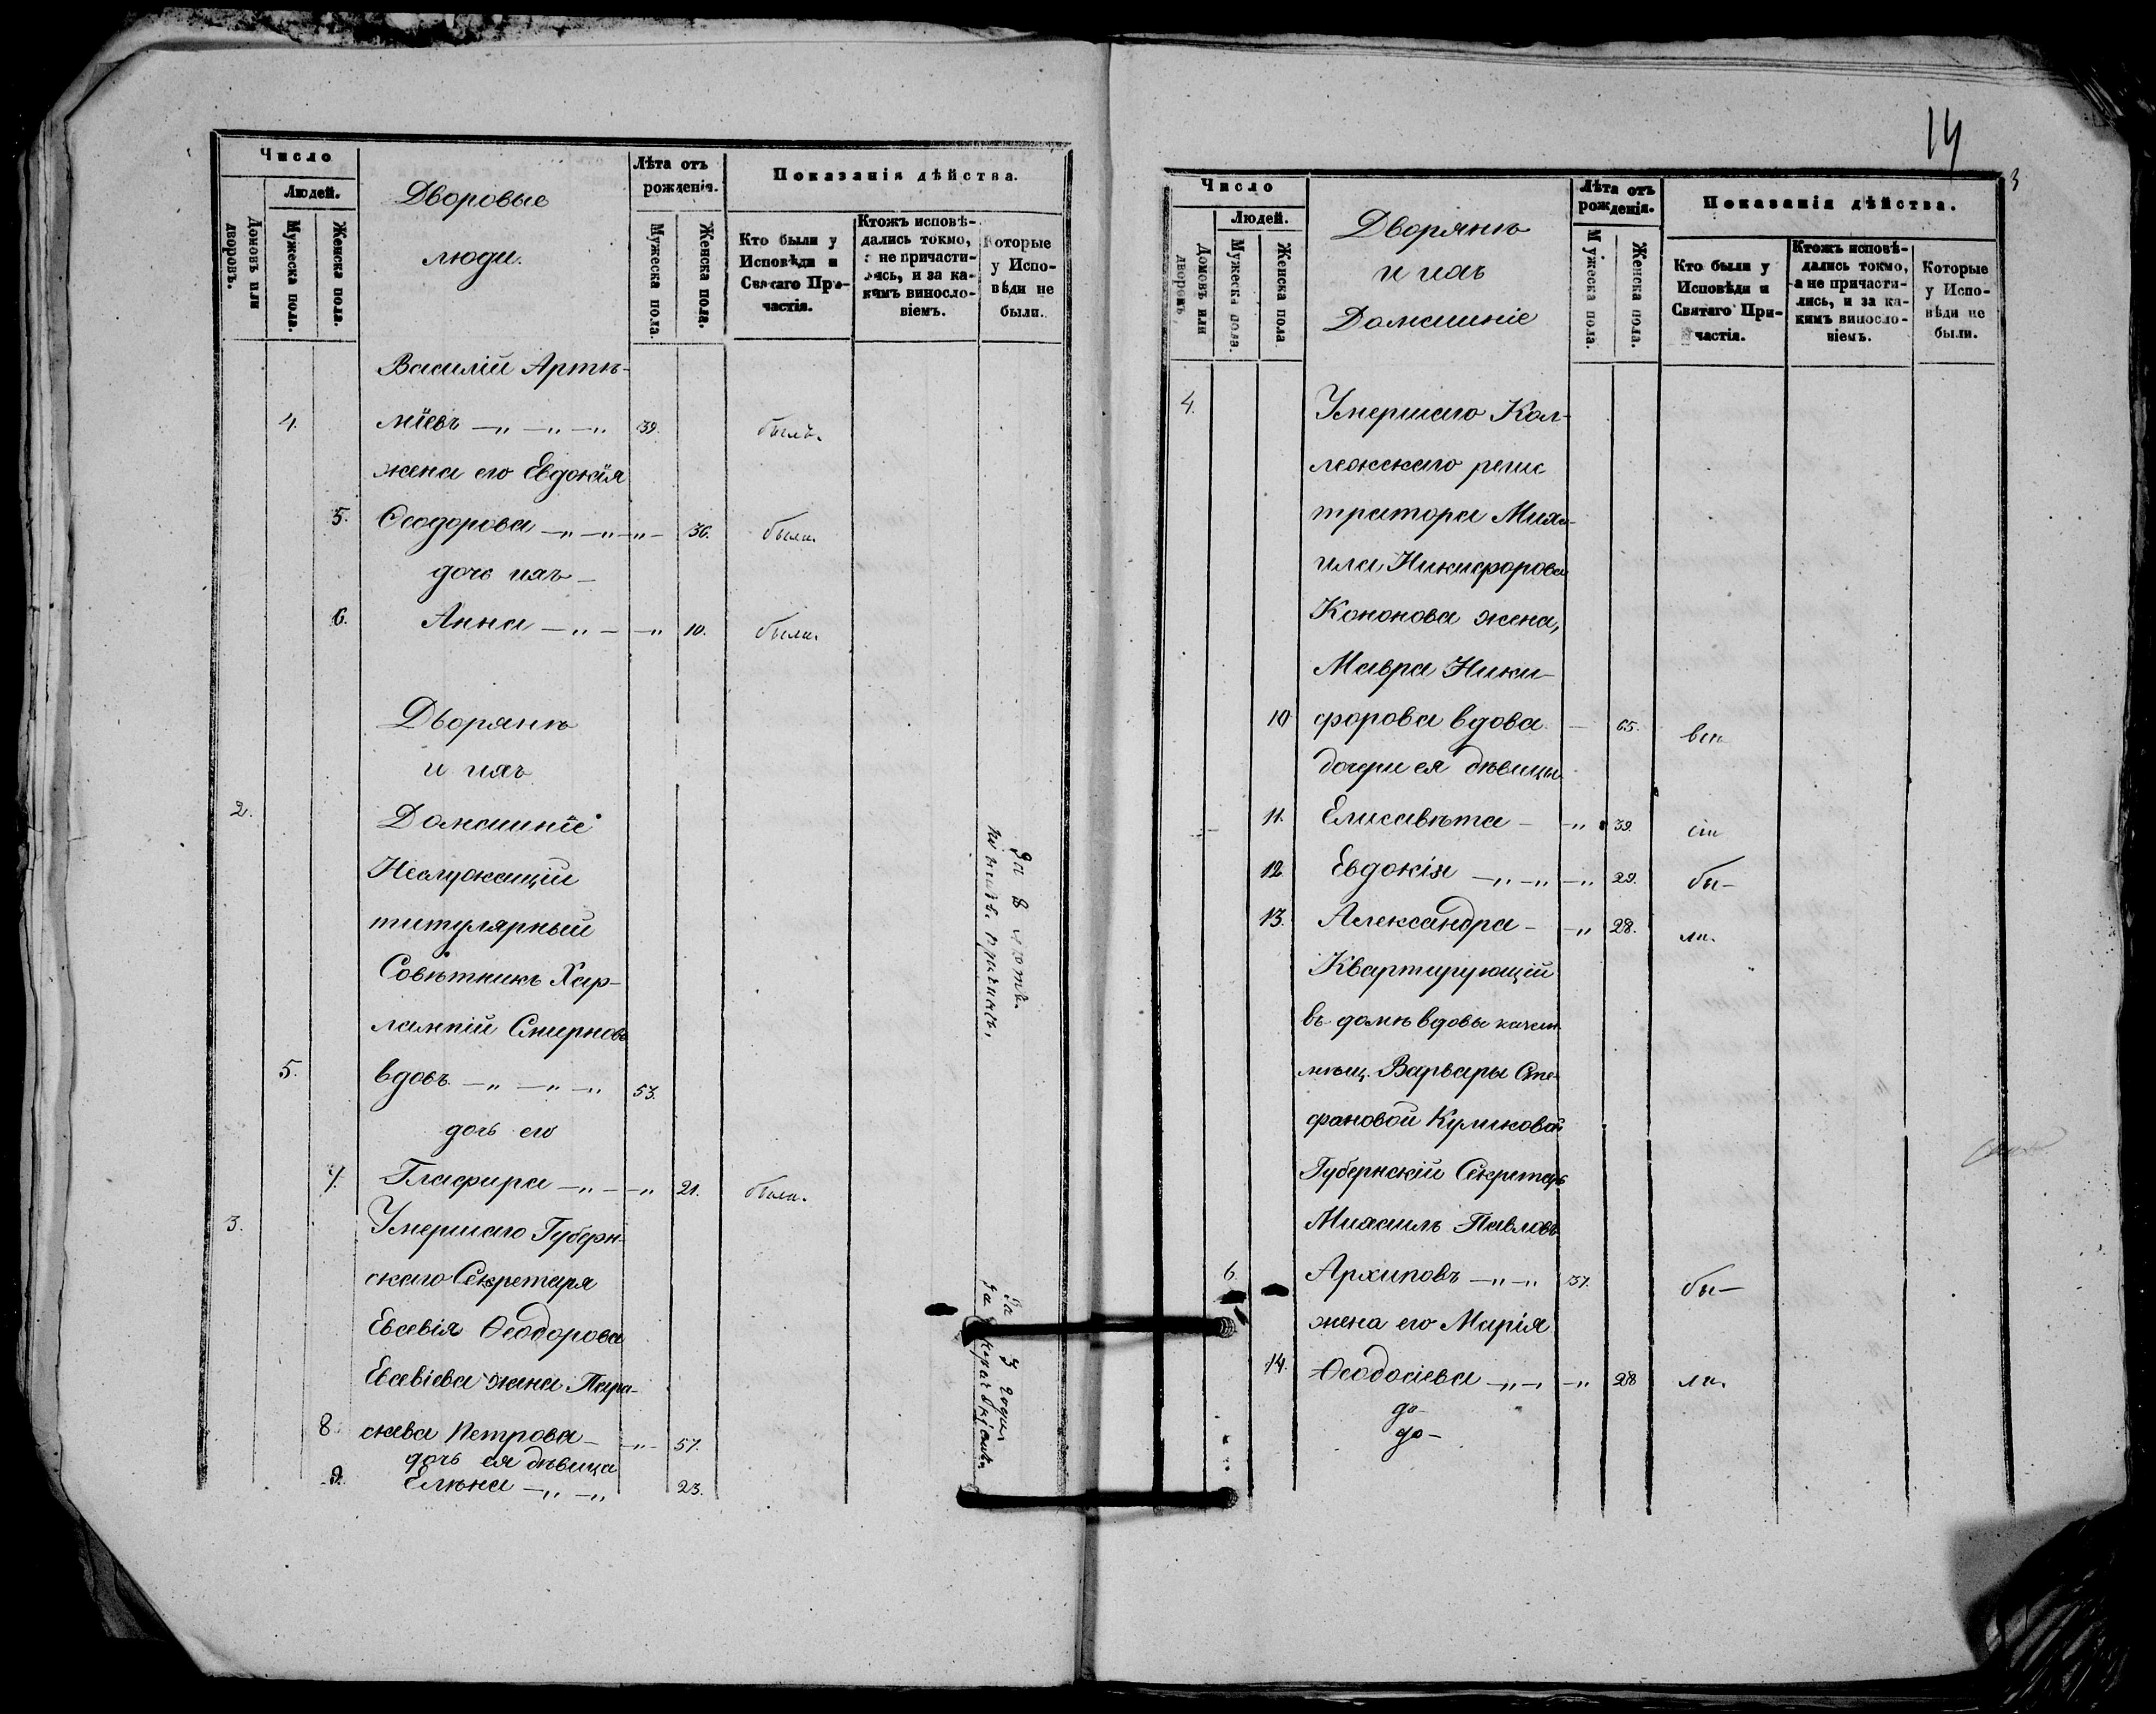 Число
Людей.
Домовъ или дворовъ.
Мужеска пола.
Женска пола.
Дворовые
люди.
Лѣта отъ рожденія.
Мужеска пола.
Женска пола.
Показанія дѣйства.
Кто были у Исповѣди и Святаго Причастія.
Ктожъ исповѣдались токмо, а не причастились, и за какимъ винословіемъ.
Которые у Исповѣди не были.
Василій Артѣ-
4. міевъ 39. былъ.
жена его Евдокія
5. Ѳеодорова 36. была.
дочь ихъ
6. Анна 10. была.
Дворянѣ
и ихъ
2. Домашніе
Неслужащій
титулярный
Совѣтникъ Хар-
лампій Смирновъ
5. вдовъ 53.
дочь его
7. Глафира 21. была.
3. Умершаго Губерн-
скаго Секретаря
Евсевія Ѳеодорова
Евсевіева жена Пара-
8. скева Петрова 57.
дочь ея дѣвица
9. Елѣна 23.
За 3 года
14
3
Число
Людей.
Домовъ или дворовъ.
Мужеска пола.
Женска пола
Дворянѣ
и ихъ
Домашніе
Лѣта отъ рожденія.
Мужеска пола.
Женска пола.
Показанія дѣйства.
Кто были у Исповѣди и Святаго Причастія.
Ктожъ исповѣдались токмо, а не причастились, и за какимъ винословіемъ.
Которые у Исповѣди не были.
4. Умершаго Кол-
лежскаго регис
тратора Миха-
ила Никифорова
Кононова жена,
Мавра Ники-
10 форова вдова 65. всѣ
дочери ея дѣвицы
11. Елисавѣта 39.
12. Евдокія 29. бы-
13. Александра 28. ли.
Квартирующій
въ домѣ вдовы
мѣщ. Варвары Сте-
фановой Куликовой
Губернскій Секретарь
Михаилъ Павловъ
6. Архиповъ 37. бы-
жена его Марія
14. Ѳеодосіева 28 ли.
до-
до-